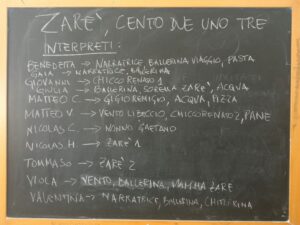 ZARÈ, CENTO DUE UNO TRE
INTERPRETI:
BENEDETTA → NARRATRICE BALLERINA VIAGGIO, PASTA
GAIA → NARRATRICE, BALLERINA
GIOVANNI → CHICCO RENATO 1
GIULIA → BALLERINA, SORELLA ZARÈ, ACQUA
MATTEO C. → GIGIO REMIGIO, ACQUA, PIZZA
MATTEO V. → VENTO LIBECCIO, CHICCO RENATO 2, PANE
NICOLAS C. → NONNO GAETANO
NICOLAS H. → ZARÈ 1
TOMMASO → ZARÈ 2
VIOLA → VENTO, BALLERINA, MAMMA ZARÈ
VALENTINA → NARRATRICE, BALLERINA, CHITARRINA